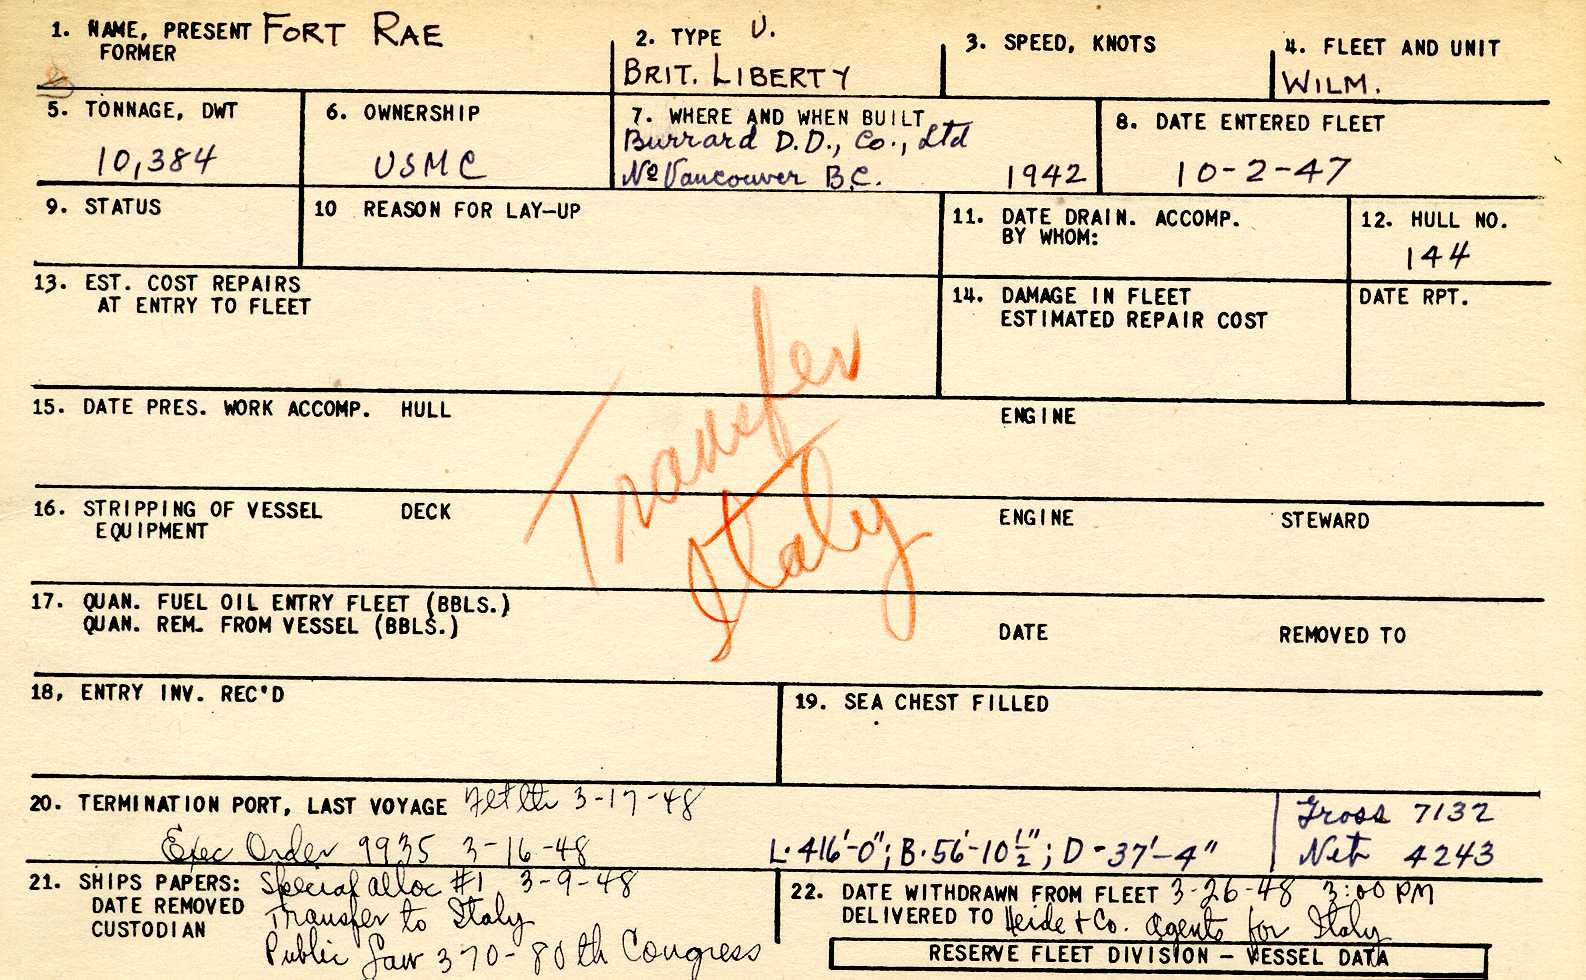 1. NAME, PRESENT FORT RAE
FORMER
2. TYPE U.
BRIT. LIBERTY
3. SPEED, KNOTS
4. FLEET AND UNIT
WILM.
5. TONNAGE, DWT
10,384
6. OWNERSHIP
USMC
7. WHERE AND WHEN BUILT
Burrard D.D., Co., Ltd
No Vancouver B.C. 1942
8. DATE ENTERED FLEET
10-2-47
9. STATUS
10 REASON FOR LAY-UP
11. DATE DRAIN. ACCOMP.
BY WHOM:
12. HULL NO.
144
13. EST. COST REPAIRS
AT ENTRY TO FLEET
14. DAMAGE IN FLEET
ESTIMATED REPAIR COST
DATE RPT.
Transfer
Italy
15. DATE PRES. WORK ACCOMP. HULL ENGINE
16. STRIPPING OF VESSEL DECK ENGINE STEWARD
EQUIPMENT
17. QUAN. FUEL OIL ENTRY FLEET (BBLS.)
QUAN. REM. FROM VESSEL (BBLS.) DATE REMOVED TO
18, ENTRY INV. REC'D
19. SEA CHEST FILLED
20. TERMINATION PORT, LAST VOYAGE 3-17-48
Exec Order 9935 3-16-48
L. 416'-0"; B. 56'-10 1/2"; D - 37'-4"
Gross 7132
Net 4243
21. SHIPS PAPERS: Special alloc #1 3-9-48
DATE REMOVED Transfer to Italy
CUSTODIAN Public Law 370-80th Congress
22. DATE WITHDRAWN FROM FLEET 3-26-48 3:00 PM
DELIVERED TO Heide & Co. Agents for Italy
RESERVE FLEET DIVISION - VESSEL DATA